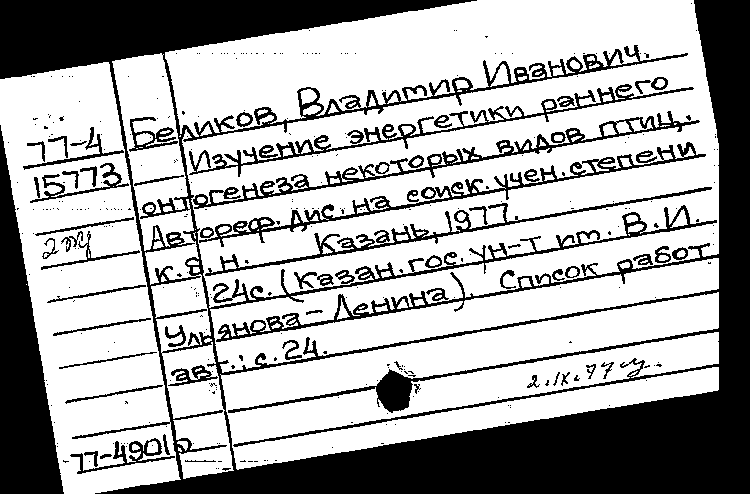 77-4
15773
2 экз
Беликов, Владимир Иванович.
Изучение энергетики раннего
онтогенеза некоторых видов птиц.
Автореф. дис. на соиск. учен. степени
к. б. н. Казань, 1977.
24с. (Казан. гос. ун-т им. В. И.
Ульянова-Ленина). Список работ
авт.: с. 24.
2.IX.77
77-4901